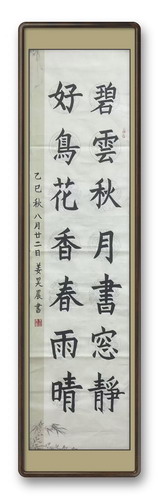 碧雲秋月書窓靜
好鳥花香春雨晴
乙巳秋八月廿二日姜昊晨書